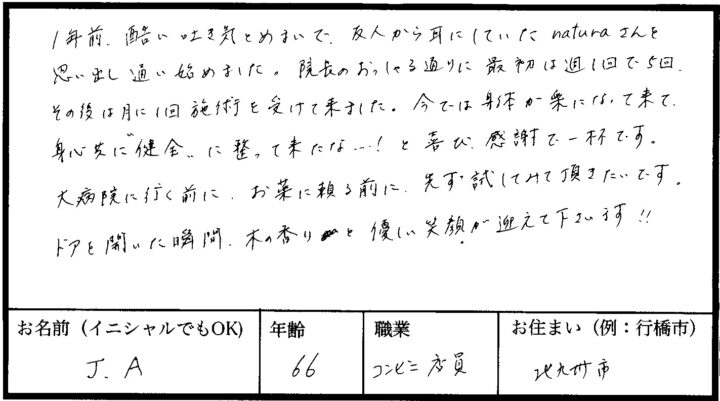 1年前、酷い吐き気とめまいで、友人から耳にしていたnaturaさんを
思い出し通い始めました。院長のおっしゃる通りに最初は週1回で5回、
その後は月に1回施術を受けて来ました。今では身体が楽になって来て、
身心共に"健全"に整って来たな…!と喜び、感謝で一杯です。
大病院に行く前に、お薬に頼る前に、先ず試してみて頂きたいです。
ドアを開いた瞬間、木の香りと優しい笑顔が迎えて下さいます!!
お名前(イニシャルでもOK) 年齢 職業 お住まい(例:行橋市)
J.A 66 コンビニ店員 北九州市